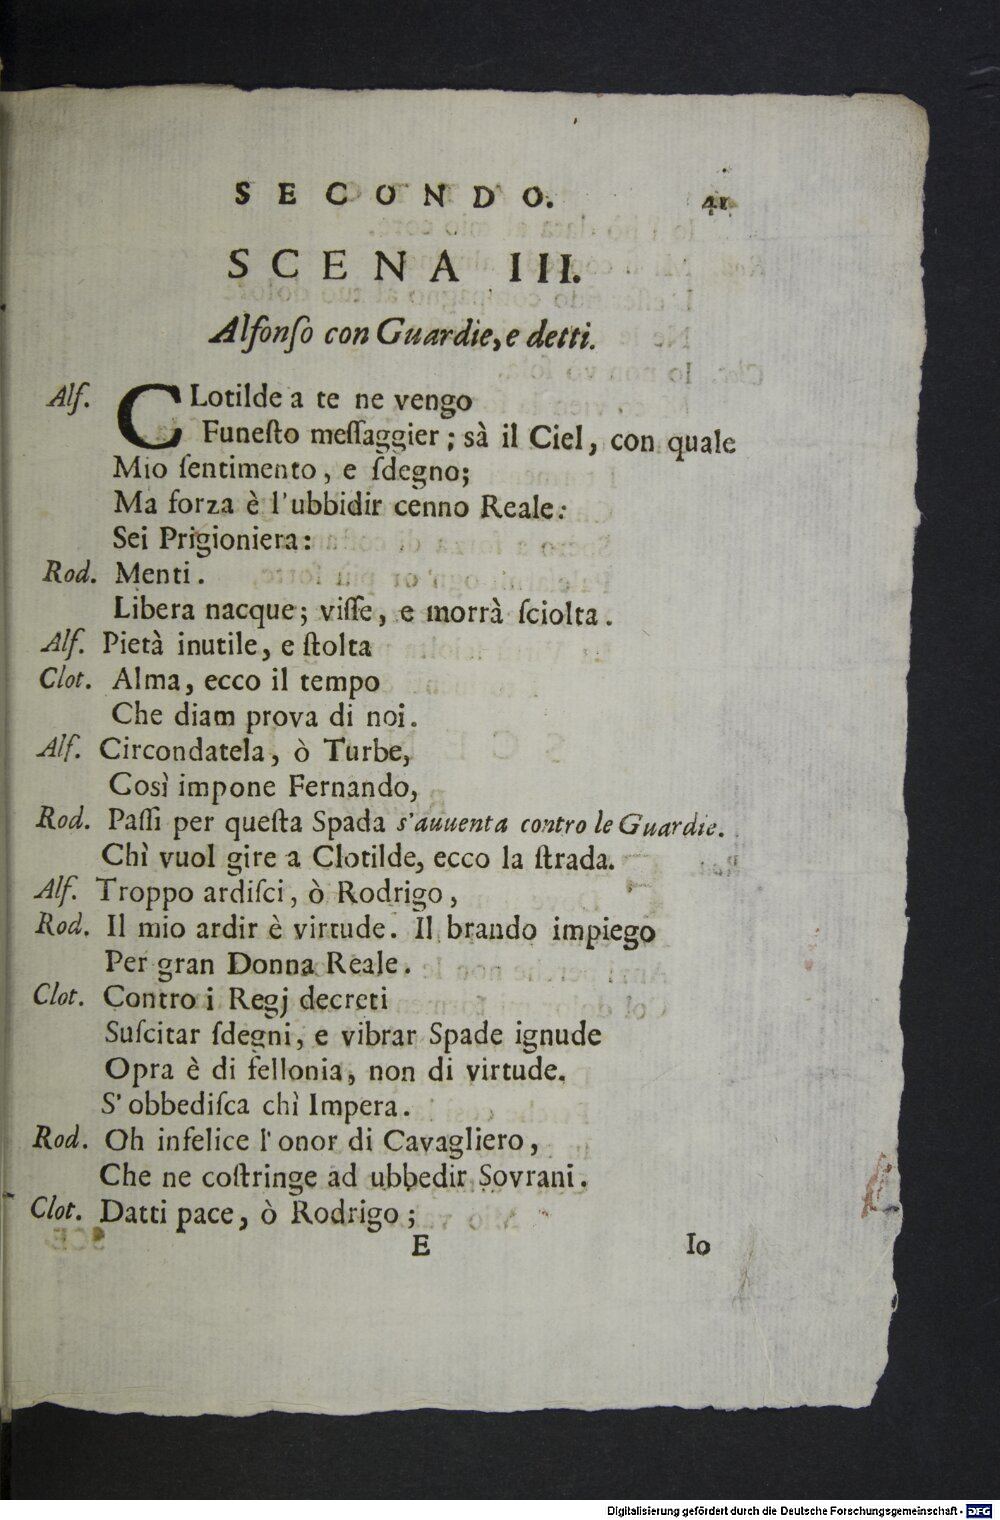 SECONDO. 41
SCENA III.
Alfonſo con Guardie, e detti.
Alf. CLotilde a te ne vengo
Funeſto meſſaggier; sà il Ciel, con quale
Mio ſentimento, e ſdegno;
Ma forza è l'ubbidir cenno Reale:
Sei Prigioniera:
Rod. Menti.
Libera nacque; viſſe, e morrà ſciolta.
Alf. Pietà inutile, e ſtolta
Clot. Alma, ecco il tempo
Che diam prova di noi.
Alf. Circondatela, ò Turbe,
Così impone Fernando,
Rod. Paſſi per queſta Spada s'auuenta contro le Guardie.
Chì vuol gire a Clotilde, ecco la ſtrada.
Alf. Troppo ardiſci, ò Rodrigo,
Rod. Il mio ardir è virtude. Il brando impiego
Per gran Donna Reale.
Clot. Contro i Regj decreti
Suſcitar ſdegni, e vibrar Spade ignude
Opra è di fellonia, non di virtude.
S'obbediſca chì Impera.
Rod. Oh infelice l'onor di Cavagliero,
Che ne coſtringe ad ubbedir Sovrani.
Clot. Datti pace, ò Rodrigo;
E Io
Digitalisierung gefördert durch die Deutsche Forschungsgemeinschaft - DFG